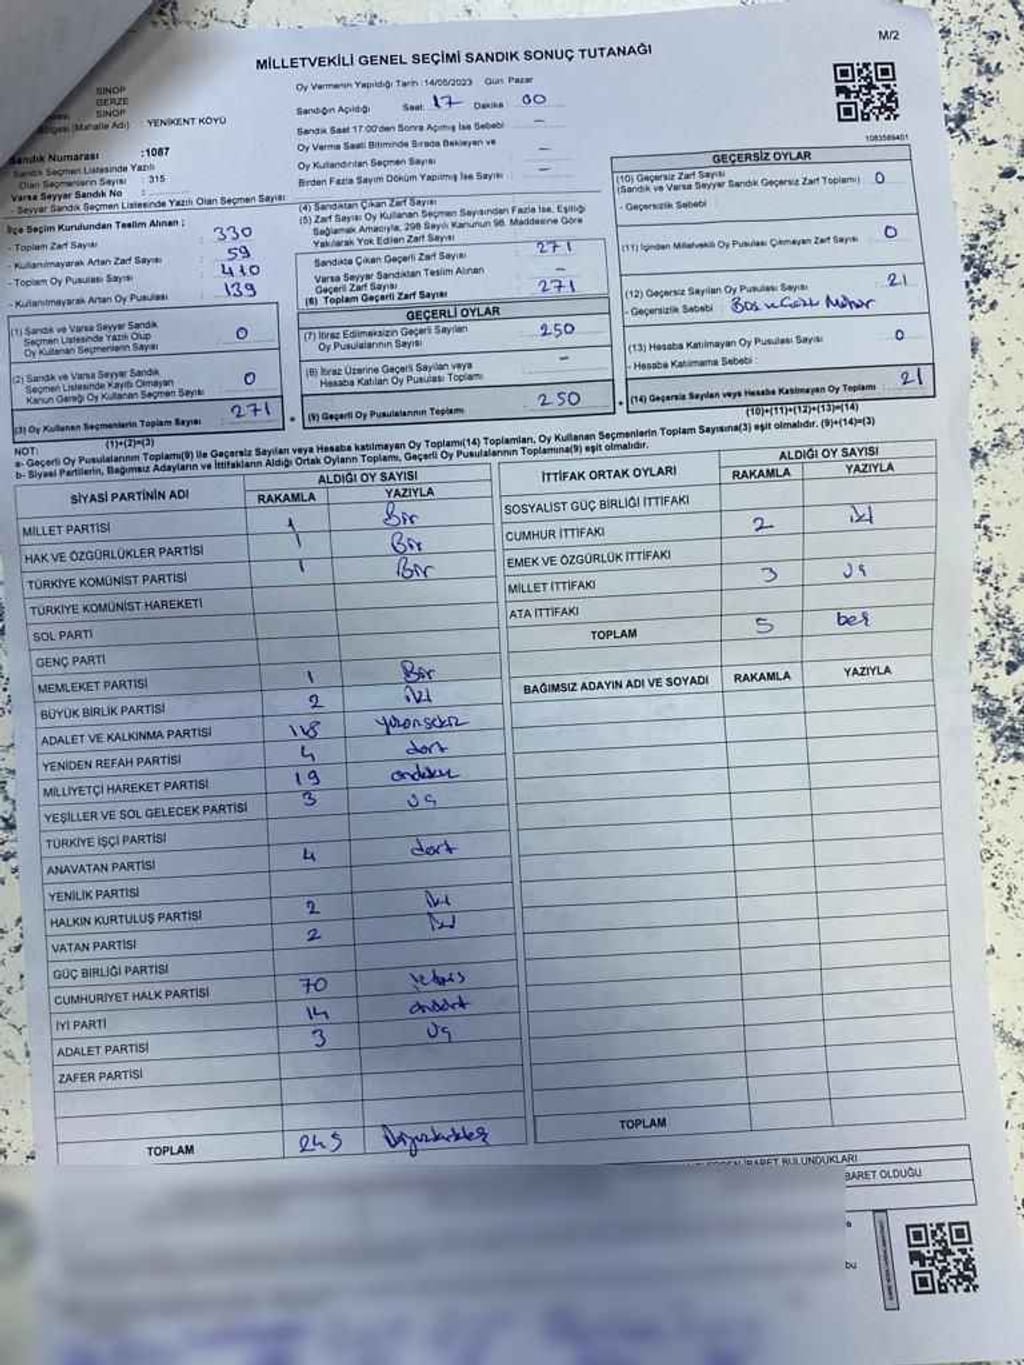 M/2
MİLLETVEKİLİ GENEL SEÇİMİ SANDIK SONUÇ TUTANAĞI
SİNOP
GERZE
SİNOP
(Mahalle Adı) : YENİKENT KÖYÜ
Sandık Numarası :1087
Sandık Seçmen Listesinde Yazılı
Olan Seçmenlerin Sayısı : 315
Varsa Seyyar Sandık No :
- Seyyar Sandık Seçmen Listesinde Yazılı Olan Seçmen Sayısı
Oy Vermenin Yapıldığı Tarih :14/05/2023 Gün: Pazar
Sandığın Açıldığı Saat: 17 Dakika : 00
Sandık Saat 17:00'den Sonra Açılmış İse Sebebi : -
Oy Verme Saati Bitiminde Sırada Bekleyen ve
Oy Kullandırılan Seçmen Sayısı : -
Birden Fazla Sayım Döküm Yapılmış İse Sayısı : -
1083589401
İlçe Seçim Kurulundan Teslim Alınan ;
- Toplam Zarf Sayısı : 330
- Kullanılmayarak Artan Zarf Sayısı : 59
- Toplam Oy Pusulası Sayısı : 410
- Kullanılmayarak Artan Oy Pusulası : 139
(1) Sandık ve Varsa Seyyar Sandık
Seçmen Listesinde Yazılı Olup
Oy Kullanan Seçmenlerin Sayısı : 0
(2) Sandık ve Varsa Seyyar Sandık
Seçmen Listesinde Kayıtlı Olmayan
Kanun Gereği Oy Kullanan Seçmen Sayısı : 0
(3) Oy Kullanan Seçmenlerin Toplam Sayısı : 271
(1)+(2)=(3)
(4) Sandıktan Çıkan Zarf Sayısı
(5) Zarf Sayısı Oy Kullanan Seçmen Sayısından Fazla İse, Eşitliği
Sağlamak Amacıyla; 298 Sayılı Kanunun 98. Maddesine Göre
Yakılarak Yok Edilen Zarf Sayısı
Sandıkta Çıkan Geçerli Zarf Sayısı : 271
Varsa Seyyar Sandıktan Teslim Alınan
Geçerli Zarf Sayısı : -
(6) Toplam Geçerli Zarf Sayısı : 271
GEÇERLİ OYLAR
(7) İtiraz Edilmeksizin Geçerli Sayılan
Oy Pusulalarının Sayısı : 250
(8) İtiraz Üzerine Geçerli Sayılan veya
Hesaba Katılan Oy Pusulası Toplamı : -
(9) Geçerli Oy Pusulalarının Toplamı : 250
GEÇERSİZ OYLAR
(10) Geçersiz Zarf Sayısı
(Sandık ve Varsa Seyyar Sandık Geçersiz Zarf Toplamı) : 0
- Geçersizlik Sebebi :
(11) İçinden Milletvekili Oy Pusulası Çıkmayan Zarf Sayısı : 0
(12) Geçersiz Sayılan Oy Pusulası Sayısı : 21
- Geçersizlik Sebebi : Boş Mühür
(13) Hesaba Katılmayan Oy Pusulası Sayısı : 0
- Hesaba Katılmama Sebebi :
(14) Geçersiz Sayılan veya Hesaba Katılmayan Oy Toplamı : 21
(10)+(11)+(12)+(13)=(14)
NOT:
a- Geçerli Oy Pusulalarının Toplamı(9) ile Geçersiz Sayılan veya Hesaba katılmayan Oy Toplamı(14) Toplamları, Oy Kullanan Seçmenlerin Toplam Sayısına(3) eşit olmalıdır. (9)+(14)=(3)
b- Siyasi Partilerin, Bağımsız Adayların ve İttifakların Aldığı Ortak Oyların Toplamı, Geçerli Oy Pusulalarının Toplamına(9) eşit olmalıdır.
SİYASİ PARTİNİN ADI ALDIĞI OY SAYISI
RAKAMLA YAZIYLA
MİLLET PARTİSİ 1 Bir
HAK VE ÖZGÜRLÜKLER PARTİSİ 1 Bir
TÜRKİYE KOMÜNİST PARTİSİ 1 Bir
TÜRKİYE KOMÜNİST HAREKETİ
SOL PARTİ
GENÇ PARTİ
MEMLEKET PARTİSİ 1 Bir
BÜYÜK BİRLİK PARTİSİ 2 iki
ADALET VE KALKINMA PARTİSİ 118 yüzonsekiz
YENİDEN REFAH PARTİSİ 4 dört
MİLLİYETÇİ HAREKET PARTİSİ 19 ondokuz
YEŞİLLER VE SOL GELECEK PARTİSİ 3 üç
TÜRKİYE İŞÇİ PARTİSİ
ANAVATAN PARTİSİ 4 dört
YENİLİK PARTİSİ
HALKIN KURTULUŞ PARTİSİ 2 iki
VATAN PARTİSİ 2 iki
GÜÇ BİRLİĞİ PARTİSİ
CUMHURİYET HALK PARTİSİ 70 yetmiş
İYİ PARTİ 14 ondört
ADALET PARTİSİ 3 üç
ZAFER PARTİSİ
TOPLAM 245
İTTİFAK ORTAK OYLARI ALDIĞI OY SAYISI
RAKAMLA YAZIYLA
SOSYALİST GÜÇ BİRLİĞİ İTTİFAKI
CUMHUR İTTİFAKI 2 iki
EMEK VE ÖZGÜRLÜK İTTİFAKI
MİLLET İTTİFAKI 3 üç
ATA İTTİFAKI
TOPLAM 5 beş
BAĞIMSIZ ADAYIN ADI VE SOYADI RAKAMLA YAZIYLA
TOPLAM
İBARET BULUNDUKLARI
BARET OLDUĞU
bu